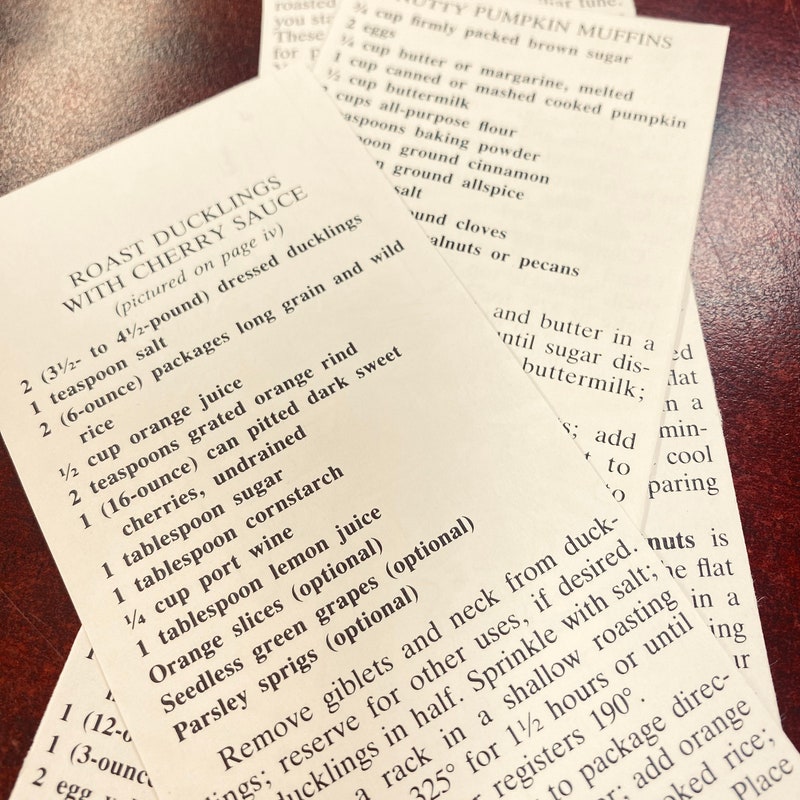 ROAST DUCKLINGS
WITH CHERRY SAUCE
(pictured on page iv)
2 (3½- to 4½-pound) dressed ducklings
1 teaspoon salt
2 (6-ounce) packages long grain and wild
rice
½ cup orange juice
2 teaspoons grated orange rind
1 (16-ounce) can pitted dark sweet
cherries, undrained
1 tablespoon sugar
1 tablespoon cornstarch
¼ cup port wine
1 tablespoon lemon juice
Orange slices (optional)
Seedless green grapes (optional)
Parsley sprigs (optional)
Remove giblets and neck from duck-
lings; reserve for other uses, if desired.
ducklings in half. Sprinkle with salt;
a rack in a shallow roasting
325° for 1½ hours or until
registers 190°.
to package direc-
add orange
rice;
Place
NUTTY PUMPKIN MUFFINS
¾ cup firmly packed brown sugar
2 eggs
¼ cup butter or margarine, melted
1 cup canned or mashed cooked pumpkin
½ cup buttermilk
cups all-purpose flour
baking powder
ground cinnamon
ground allspice
salt
cloves
or pecans
and butter in a
until sugar dis-
buttermilk;
add
to
to
roasted
you
These
for
flat
in a
min-
cool
nuts is
flat
in a
1
1 (3-ounce
2 egg